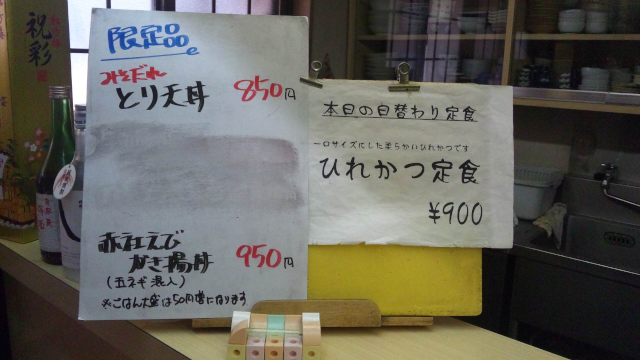 祝彩
限定品
みそだれ
とり天丼 850円
赤社えび
かき揚丼 950円
(玉ネギ混入)
※ごはん大盛は50円増になります
本日の日替わり定食
一口サイズにした柔らかいひれかつです
ひれかつ定食
¥900